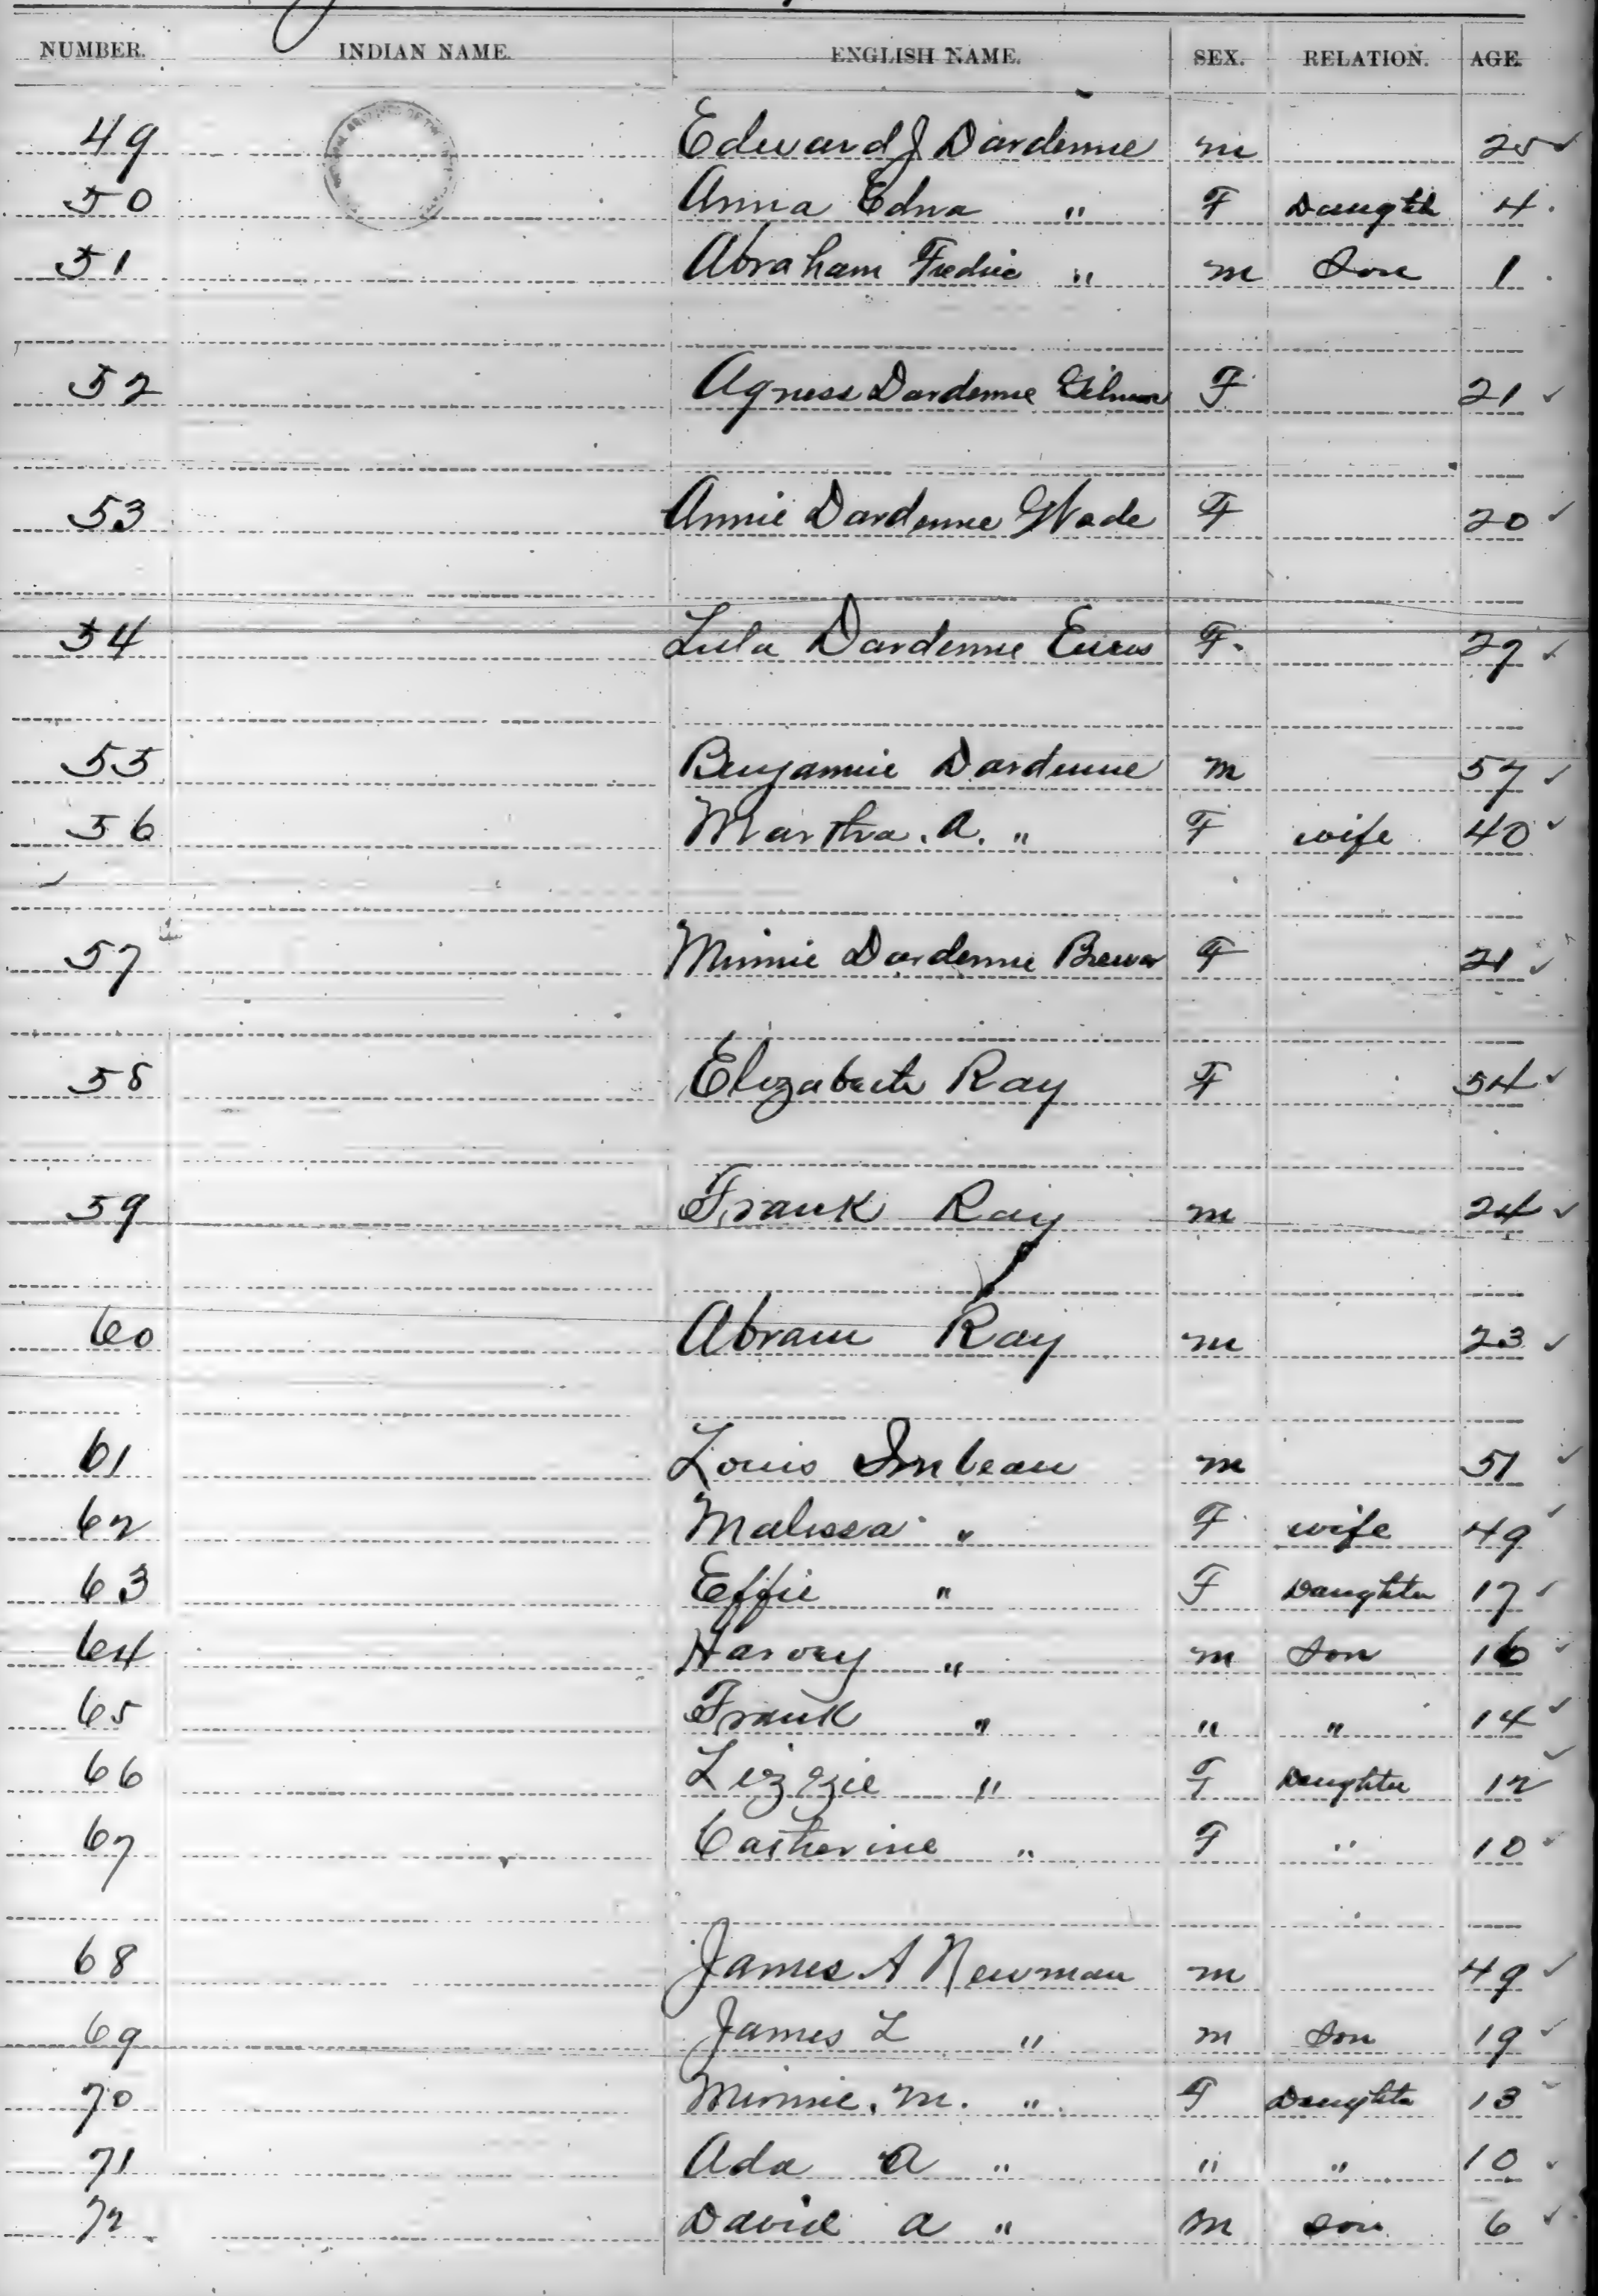 NUMBER. INDIAN NAME. ENGLISH NAME. SEX. RELATION. AGE.
49 Edward J Dardenne m 25 ✓
50 Anna Edna " F Daughtr 4
51 Abraham Fredric " m Son 1
52 Agness Dardenne F 21 ✓
53 Annie Dardenne Wade F 20 ✓
54 Lula Dardenne F. 27 ✓
55 Benjamine Dardenne m 57 ✓
56 Martha. A. " F wife 40 ✓
57 Minnie Dardenne Brewer F 21 ✓
58 Elizabeth Ray F 54 ✓
59 Frank Ray m 24 ✓
60 Abram Ray m 23 ✓
61 Louis Imbeau m 51 ✓
62 Malissa " F wife 49 ✓
63 Effie " F Daughter 17 ✓
64 Harvey " m Son 16 ✓
65 Frank " " " 14 ✓
66 Lizzie " F Daughter 12 ✓
67 Catherine " F " 10 ✓
68 James A Newman m 49 ✓
69 James L " m Son 19 ✓
70 Minnie. m. " F Daughter 13
71 Ada A " " " 10 ✓
72 David A " m son 6 ✓